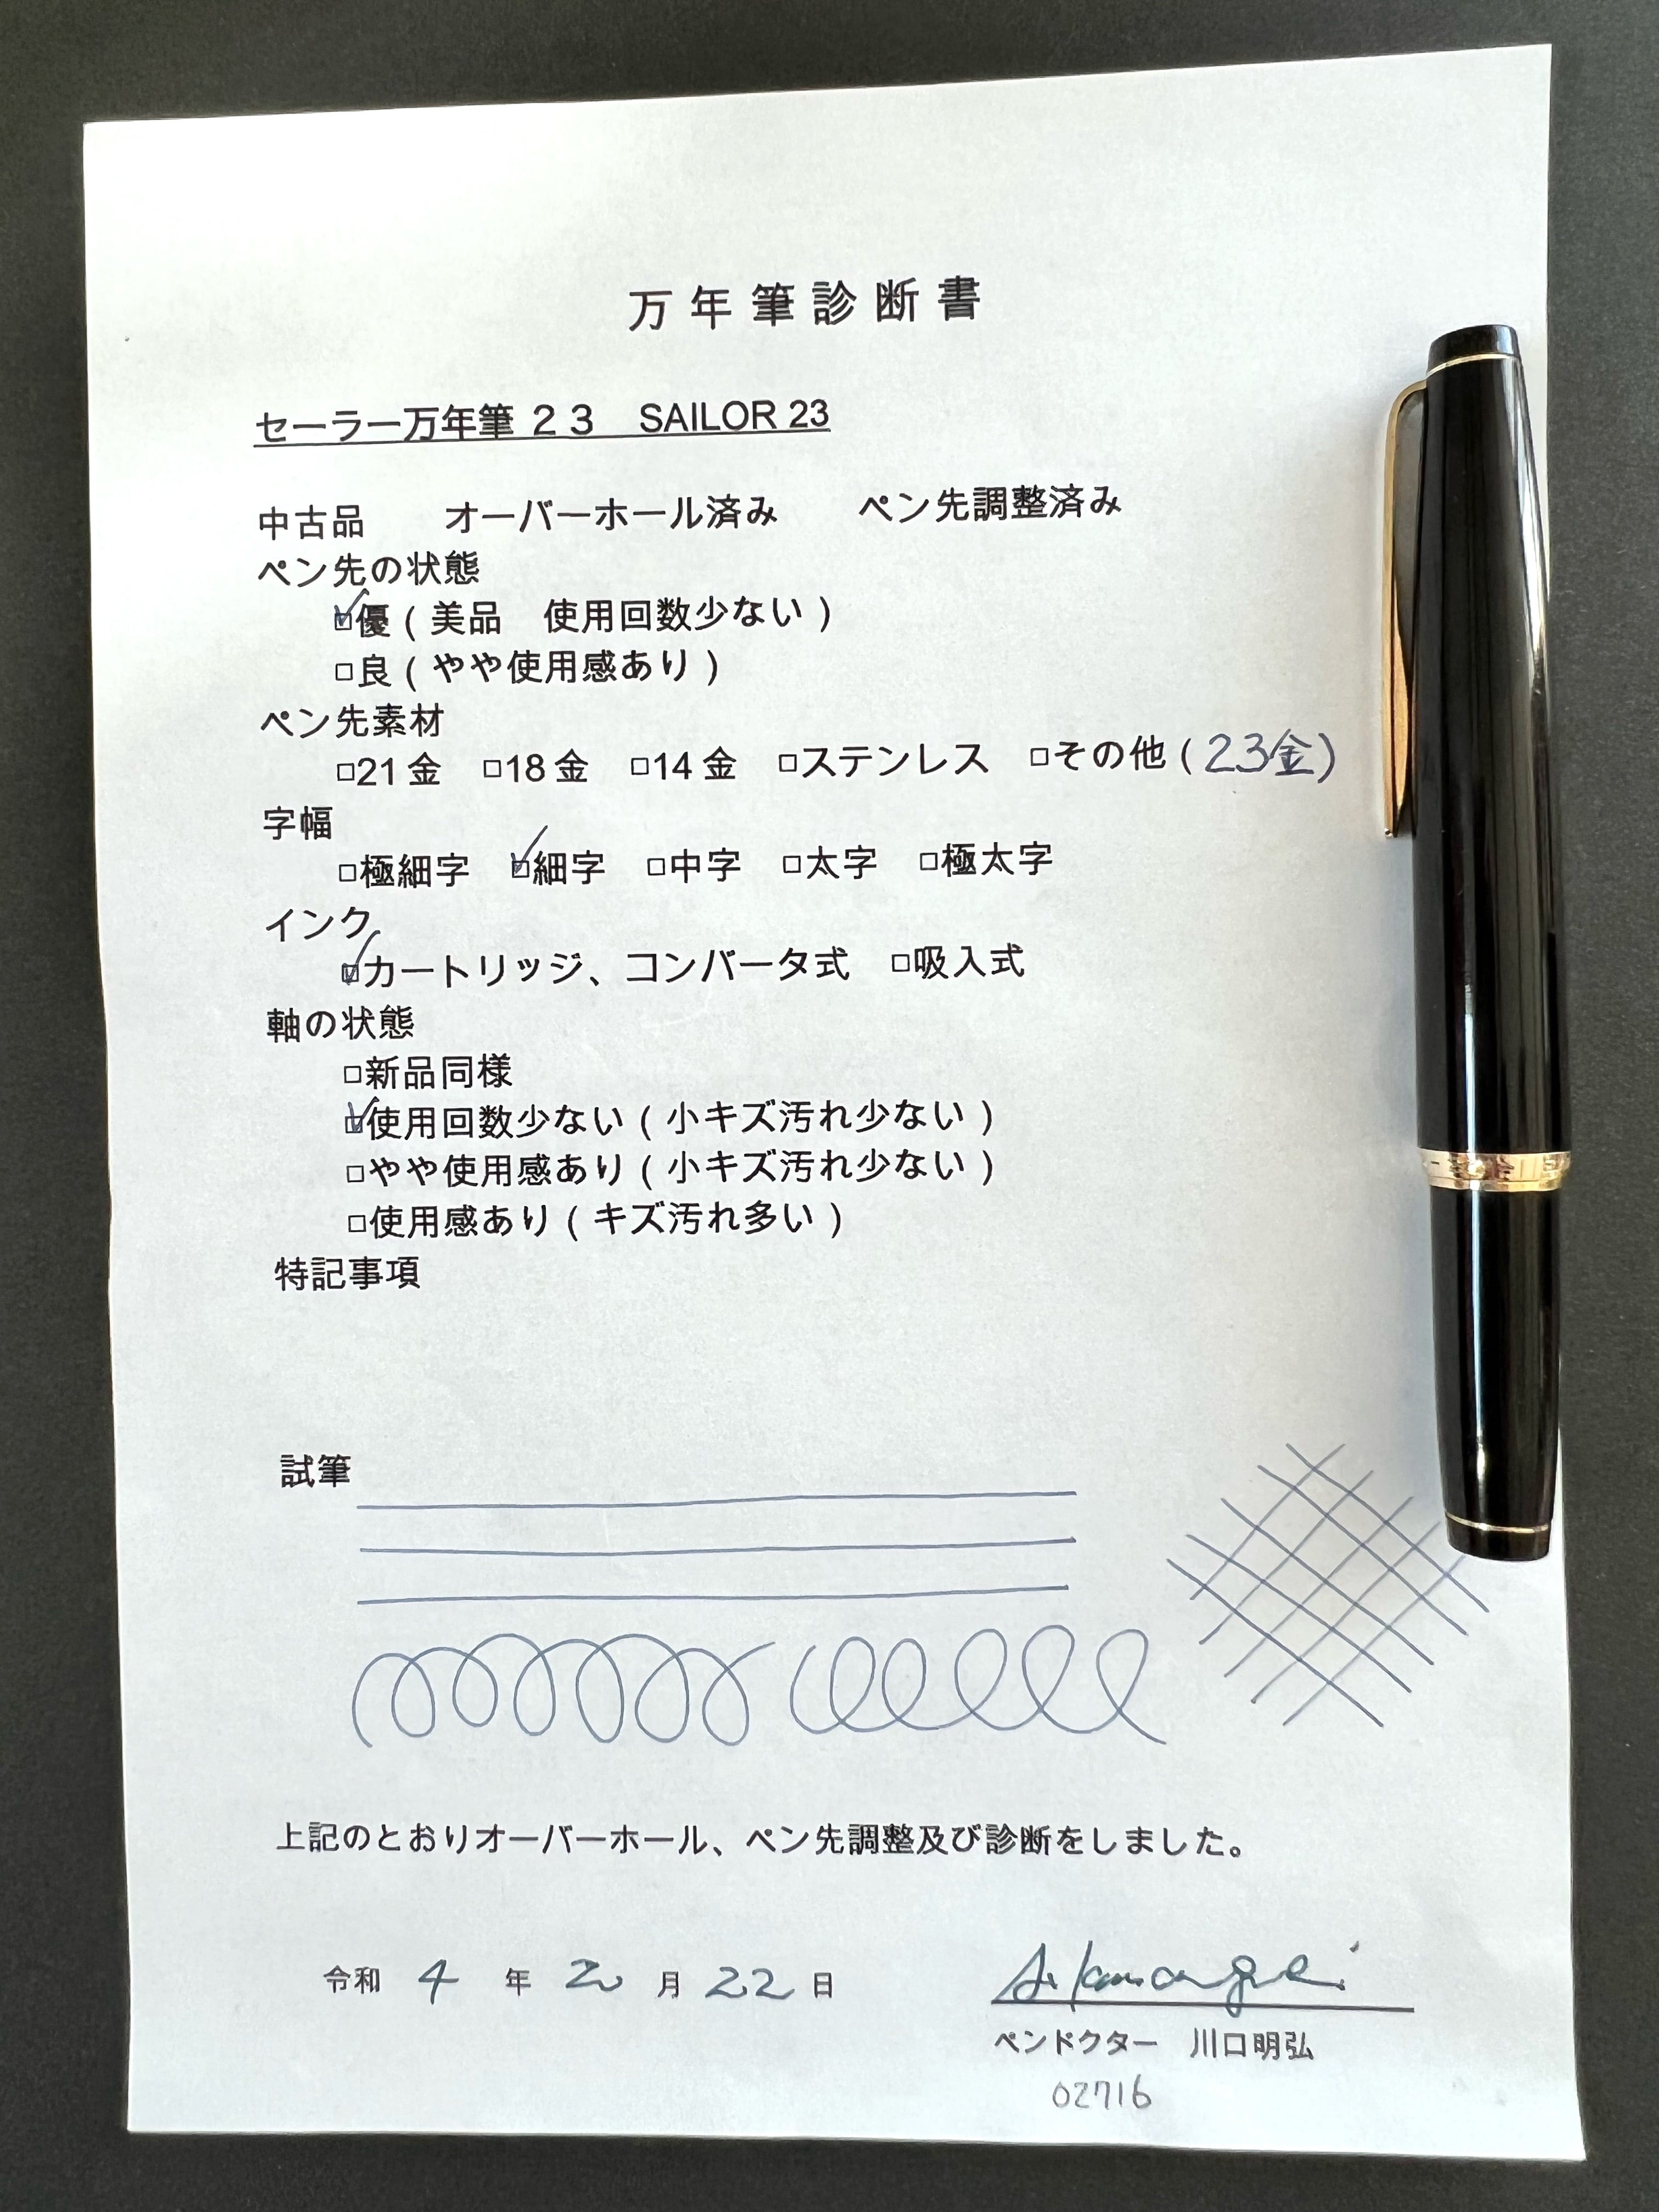 万年筆診断書
セーラー万年筆 ２３　SAILOR 23
中古品　　オーバーホール済み　　ペン先調整済み
ペン先の状態
☑優（美品　使用回数少ない）
□良（やや使用感あり）
ペン先素材
□21金　□18金　□14金　□ステンレス　□その他（23金）
字幅
□極細字　☑細字　□中字　□太字　□極太字
インク
☑カートリッジ、コンバータ式　□吸入式
軸の状態
□新品同様
☑使用回数少ない（小キズ汚れ少ない）
□やや使用感あり（小キズ汚れ少ない）
□使用感あり（キズ汚れ多い）
特記事項
試筆
上記のとおりオーバーホール、ペン先調整及び診断をしました。
令和 4 年 2 月 22 日
ペンドクター　川口明弘
02716